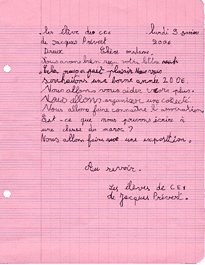 Les élèves de CE1 lundi 9 janvier
de Jacques Prévert 2006
Chère madame,
Nous avons bien reçu votre lettre
Cela nous a fait plaisir. Nous vous
souhaitons une bonne année 2006.
Nous allons vous aider votre plus.
Nous allons organiser une collecte
Nous allons faire connaître l'association
Est-ce que nous pouvons écrire à
une classe du maroc ?
Nous allons faire une exposition.
Au revoir.
Les élèves de CE1
de Jacques Prévert.